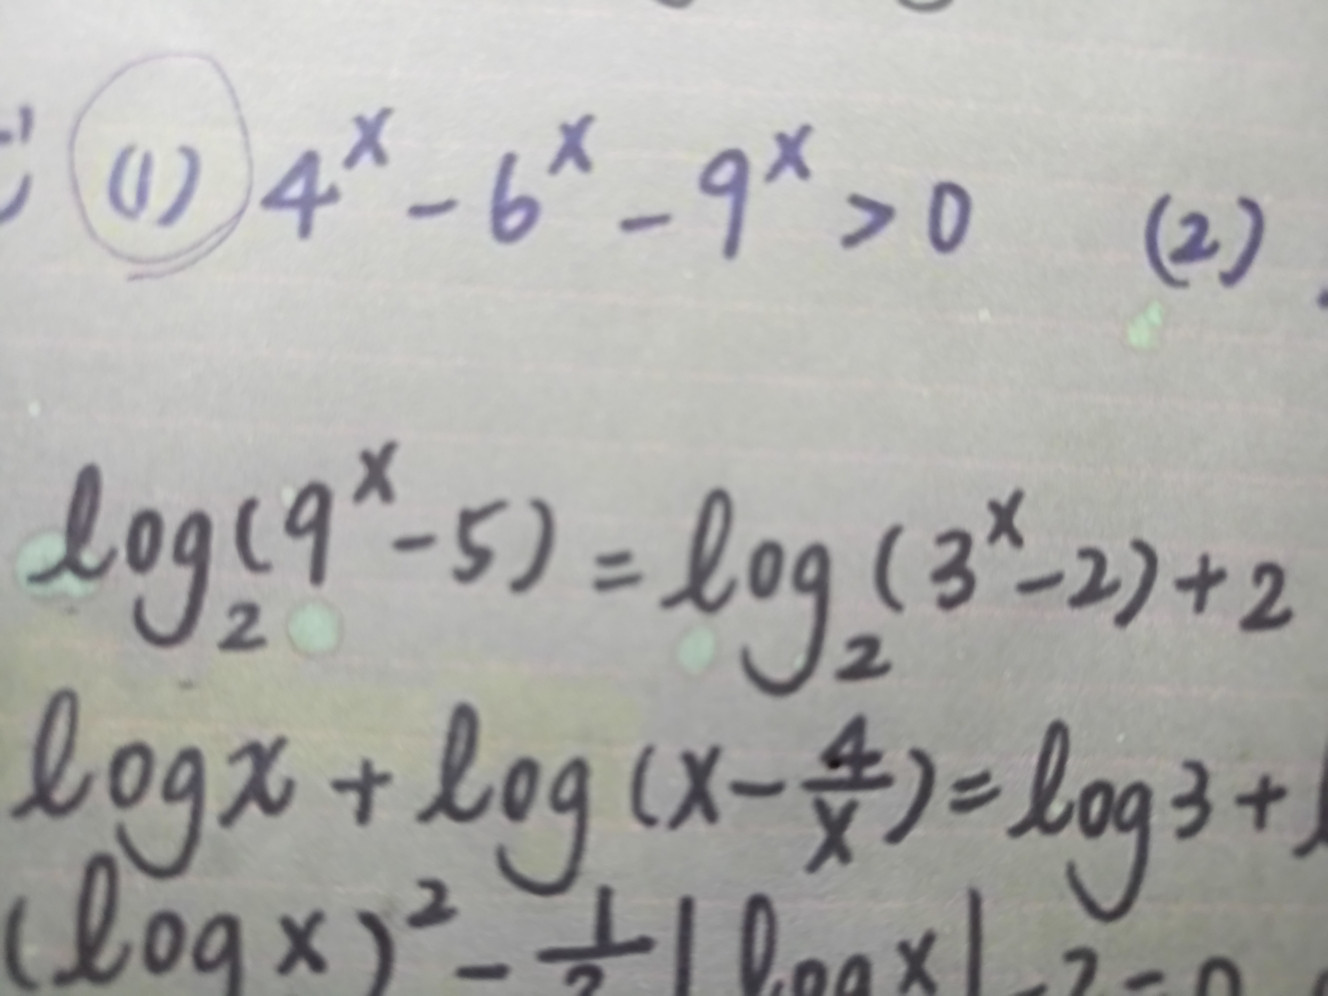 (1) 4^x - 6^x - 9^x > 0 (2)
log₂(9^x - 5) = log₂(3^x - 2) + 2
log x + log(x - 4/x) = log 3 +
(log x)² - 1/2 |log x| - 2 = 0